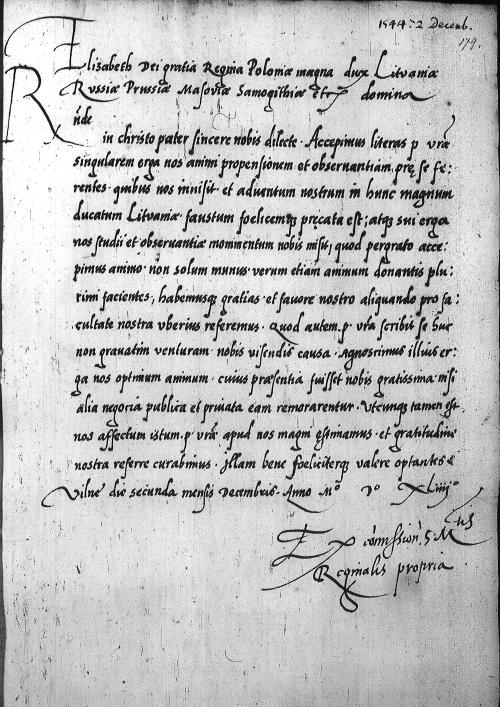 1544: 2 Decemb.
179.
Elizabeth Dei gratia Regina Poloniæ magna dux Litvaniæ
Rvssiæ Prvssiæ Masoviæ Samogithiæ etc domina
Rńde
in christo pater sincere nobis dilecte. Accepimus literas p. vrae
singularem erga nos animi propensionem et obseruantiam prę se fe:
rentes. quibus nos inuisit et aduentum nostrum in hunc magnum
ducatum Litvaniæ faustum foelicemq; pręcata est; atq; sui erga
nos studij et obseruantiæ monimentum nobis misit, quod pergrato acce:
pimus animo. non solum munus. verum etiam animum donantis plu:
rimi facientes, habemusq; gratias. et fauore nostro aliquando pro fa:
cultate nostra vberius referemus. Quod autem. p. vra scribit se huc
non grauatim venturam. nobis visendis causa. Agnoscimus illius er:
ga nos optimum animum. cuius præsentia fuisset nobis gratissima. nisi
alia negocia publica et priuata eam remorarentur. Vtcunq; tamen est
nos affectum istum. p. vrae apud nos magni ęstimamus. et gratitudine
nostra referre curabimus. Illam bene foeliciterq; valere optantes.
Vilne die secunda mensis Decembris. Anno Mº Dº XLiiijº
Ex cōmissiōn. S. Mtis
Reginalis propria